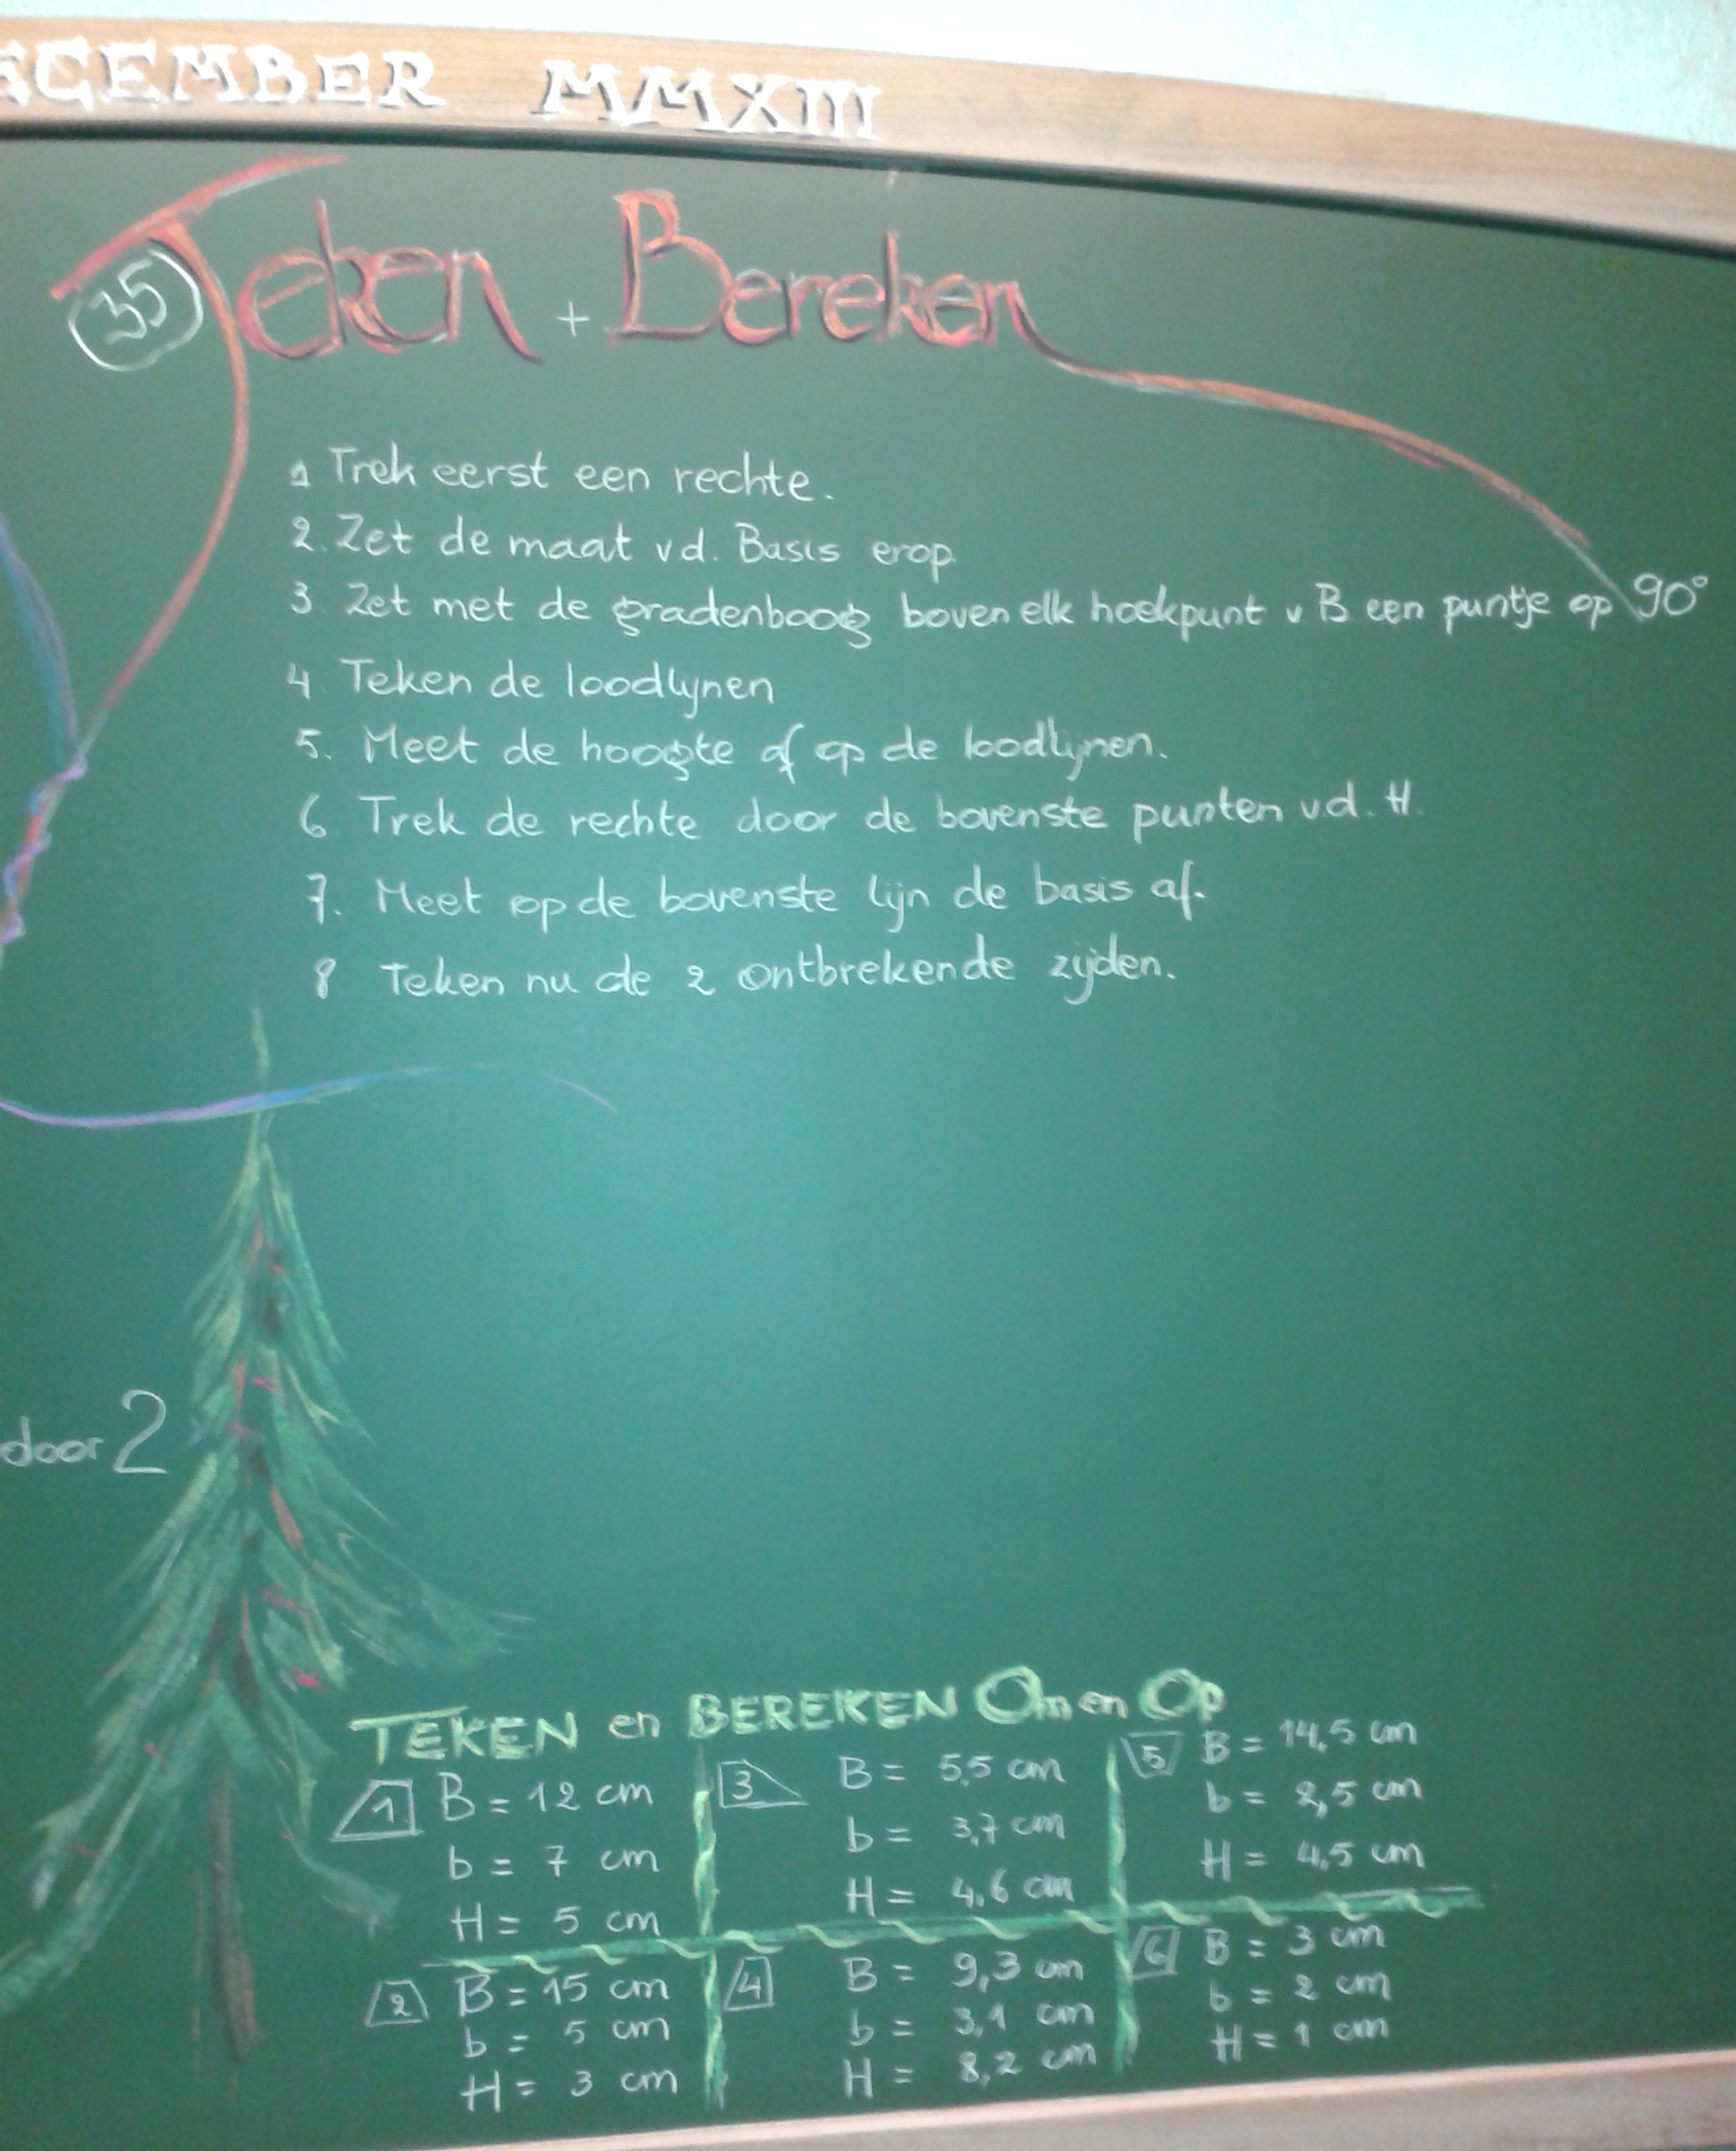 ECEMBER MMXIII
35 Teken + Bereken
1 Trek eerst een rechte.
2. Zet de maat vd. Basis erop
3 Zet met de gradenboog boven elk hoekpunt v. B een puntje op 90°
4. Teken de loodlijnen
5. Meet de hoogte af op de loodlijnen.
6. Trek de rechte door de bovenste punten v.d. H.
7. Meet op de bovenste lijn de basis af.
8 Teken nu de 2 ontbrekende zijden.
door 2
TEKEN en BEREKEN Om en Op
1 B = 12 cm
b = 7 cm
H = 5 cm
2 B = 15 cm
b = 5 cm
H = 3 cm
3 B = 5,5 cm
b = 3,7 cm
H = 4,6 cm
4 B = 9,3 cm
b = 3,1 cm
H = 8,2 cm
5 B = 14,5 cm
b = 2,5 cm
H = 4,5 cm
6 B = 3 cm
b = 2 cm
H = 1 cm